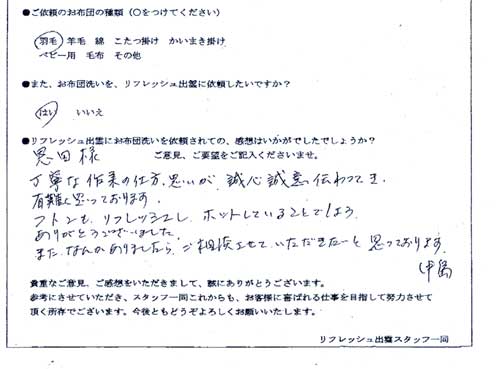 ●ご依頼のお布団の種類（○をつけてください）
羽毛 羊毛 綿 こたつ掛け かいまき掛け
ベビー用 毛布 その他
●また、お布団洗いを、リフレッシュ出雲に依頼したいですか？
はい いいえ
●リフレッシュ出雲にお布団洗いを依頼されての、感想はいかがでしたでしょうか？
恩田様 ご意見、ご要望をご記入くださいませ。
丁寧な作業の仕方、思いが、誠心誠意伝わってき、
有難く思っております。
フトンも、リフレッシュし、ホットしていることでしょう
ありがとうございました。
また、なんかありましたら、ご相談させていただきたいと思っております。
中島
貴重なご意見、ご感想をいただきまして、誠にありがとうございます。
参考にさせていただき、スタッフ一同これからも、お客様に喜ばれる仕事を目指して努力させて
頂く所存でございます。今後ともどうぞよろしくお願いいたします。
リフレッシュ出雲スタッフ一同